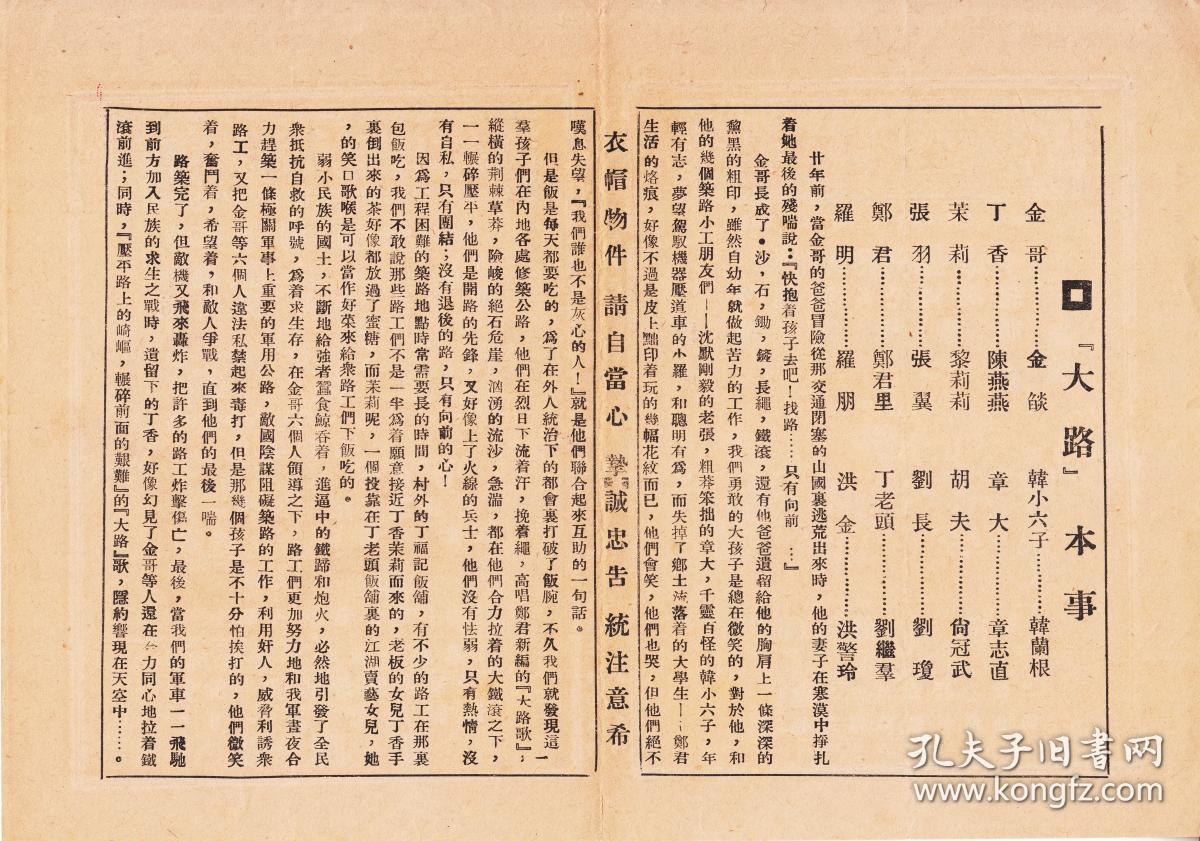 『大路』本事
金哥…………金燄
韓小六子…………韓蘭根
丁香…………陳燕燕
章大…………章志直
茉莉…………黎莉莉
胡夫…………尙冠武
張羽…………張翼
劉長…………劉瓊
鄭君…………鄭君里
丁老頭…………劉繼羣
羅明…………羅朋
洪金…………洪警玲
廿年前，當金哥的爸爸冒險從那交通閉塞的山國裏逃荒出來時，他的妻子在寒漠中掙扎
着她最後的殘喘說：『快抱着孩子去吧！找路……只有向前…』
金哥長成了•沙，石，鋤，鏟，長繩，鐵滾，還有他爸爸遺留給他的胸肩上一條深深的
黧黑的粗印，雖然自幼年就做起苦力的工作，我們勇敢的大孩子是總在微笑的，對於他，和
他的幾個築路小工朋友們——沈默剛毅的老張，粗莽笨拙的章大，千靈百怪的韓小六子，年
輕有志，夢望駕馭機器壓道車的小羅，和聰明有爲，而失掉了鄉土流落着的大學生——鄭君
生活的烙痕，好像不過是皮上黜印着玩的幾幅花紋而已，他們會笑，他們也哭，但他們絕不
衣帽物件 請自當心 摯誠忠告 統注意希
嘆息失望，『我們誰也不是灰心的人！』就是他們聯合起來互助的一句話。
但是飯是每天都要吃的，爲了在外人統治下的都會裏打破了飯腕，不久我們就發現這一
羣孩子們在內地各處修築公路，他們在烈日下流着汗，挽着繩，高唱鄭君新編的『大路歌』；
縱橫的荆棘草莽，險峻的絕石危崖，汹湧的流沙，急湍，都在他們合力拉着的大鐵滾之下，
一一輾碎壓平，他們是開路的先鋒，又好像上了火線的兵士，他們沒有怯弱，只有熱情，沒
有自私，只有團結；沒有退後的路，只有向前的心！
因爲工程困難的築路地點時常需要長的時間，村外的丁福記飯舖，有不少的路工在那裏
包飯吃，我們不敢說那些路工們不是一半爲着願意接近丁香茉莉而來的，老板的女兒丁香手
裏倒出來的茶好像都放過了蜜糖，而茉莉呢，一個投靠在丁老頭飯舖裏的江湖賣藝女兒，她
，的笑口歌喉是可以當作好菜來給衆路工們下飯吃的。
弱小民族的國土，不斷地給強者蠶食鯨吞着，進逼中的鐵蹄和炮火，必然地引發了全民
衆抵抗自救的呼號，爲着求生存，在金哥六個人領導之下，路工們更加努力地和我軍晝夜合
力趕築一條極關軍事上重要的軍用公路，敵國陰謀阻礙築路的工作，利用奸人，威脅利誘衆
路工，又把金哥等六個人違法私禁起來毒打，但是那幾個孩子是不十分怕挨打的，他們微笑
着，奮鬥着，希望着，和敵人爭戰，直到他們的最後一喘。
路築完了，但敵機又飛來轟炸，把許多的路工炸擊傷亡，最後，當我們的軍車一一飛馳
到前方加入民族的求生之戰時，遺留下的丁香，好像幻見了金哥等人還在合力同心地拉着鐵
滾前進；同時，『壓平路上的崎嶇，輾碎前面的艱難』的『大路』歌，隱約響現在天空中……。
孔夫子旧书网
www.kongfz.com